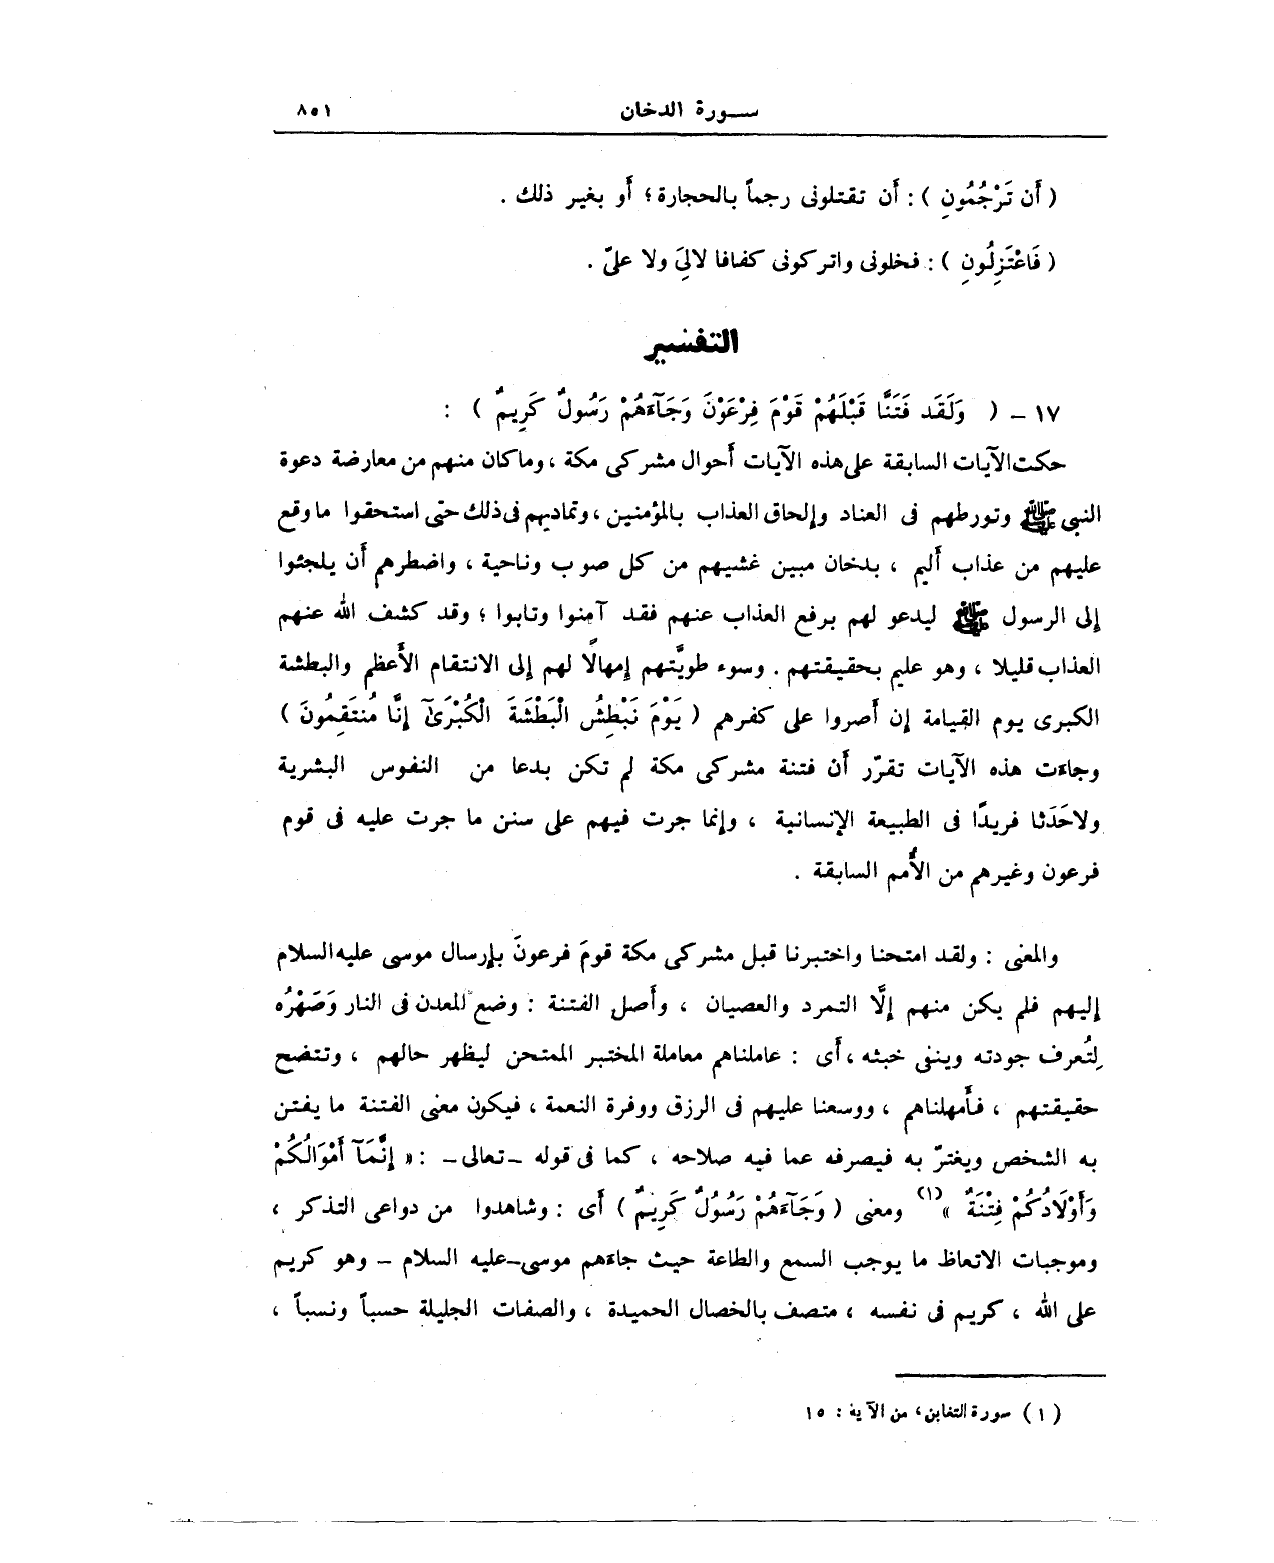 سورة الدخان ٨٥١
( أَن تَرْجُمُونِ ) : أَن تقتلونى رجماً بالحجارة ؛ أَو بغير ذلك .
( فَاعْتَزِلُونِ ) : فخلونى واتركونى كفافا لالىَ ولا علىّ .
التفسير
١٧ - ( وَلَقَد فَتَنَّا قَبْلَهُمْ قَوْمَ فِرْعَوْنَ وَجَآءَهُمْ رَسُولٌ كَرِيمٌ ) :
حكت الآيات السابقة على هذه الآيات أَحوال مشركى مكة ، وما كان منهم من معارضة دعوة
النبى ﷺ وتورطهم فى العناد وإلحاق العذاب بالمؤمنين ، وتماديهم فى ذلك حتى استحقوا ما وقع
عليهم من عذاب أَليم ، بدخان مبين غشيهم من كل صوب وناحية ، واضطرهم أَن يلجئوا
إلى الرسول ﷺ ليدعو لهم برفع العذاب عنهم فقد آمنوا وتابوا ؛ وقد كشف الله عنهم
العذاب قليلا ، وهو عليم بحقيقتهم . وسوء طويَّتهم إمهالًا لهم إلى الانتقام الأَعظم والبطشة
الكبرى يوم القيامة إن أَصروا على كفرهم ( يَوْمَ نَبْطِشُ الْبَطْشَةَ الْكُبْرَىٰٓ إِنَّا مُنتَقِمُونَ )
وجاءت هذه الآيات تقرّر أَن فتنة مشركى مكة لم تكن بدعا من النفوس البشرية
ولا حَدَثا فريدًا فى الطبيعة الإنسانية ، وإنما جرت فيهم على سنن ما جرت عليه فى قوم
فرعون وغيرهم من الأُمم السابقة .
والمعنى : ولقد امتحنا واختبرنا قبل مشركى مكة قومَ فرعونَ بإرسال موسى عليه السلام
إليهم فلم يكن منهم إلَّا التمرد والعصيان ، وأَصل الفتنة : وضع المعدن فى النار وَصَهْرُه
لِتُعرف جودته وينفى خبثه ، أَى : عاملناهم معاملة المختبر الممتحن ليظهر حالهم ، وتتضح
حقيقتهم ، فأَمهلناهم ، ووسعنا عليهم فى الرزق ووفرة النعمة ، فيكون معنى الفتنة ما يفتن
به الشخص ويغترّ به فيصرفه عما فيه صلاحه ، كما فى قوله - تعالى - : « إِنَّمَآ أَمْوَالُكُمْ
وَأَوْلَادُكُمْ فِتْنَةٌ » (١) ومعنى ( وَجَآءَهُمْ رَسُولٌ كَرِيمٌ ) أَى : وشاهدوا من دواعى التذكر ،
وموجبات الاتعاظ ما يوجب السمع والطاعة حيث جاءهم موسى - عليه السلام - وهو كريم
على الله ، كريم فى نفسه ، متصف بالخصال الحميدة ، والصفات الجليلة حسباً ونسباً ،
( ١ ) سورة التغابن ، من الآية : ١٥